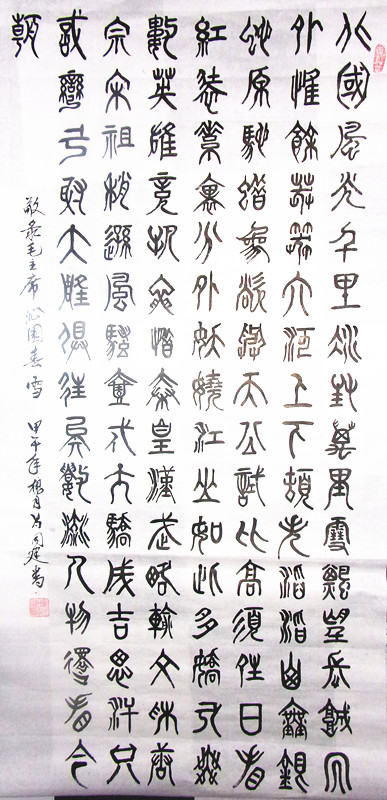 北國風光千里冰封萬里雪飄望長城內
外惟餘莽莽大河上下頓失滔滔山舞銀
蛇原馳蠟象欲與天公試比高須晴日看
紅裝素裹分外妖嬈江山如此多嬌引無
數英雄競折腰惜秦皇漢武略輸文采唐
宗宋祖稍遜風騷壹代天驕成吉思汗只
識彎弓射大雕俱往矣數流人物還看今
朝
敬录毛主席沁园春雪 甲午年